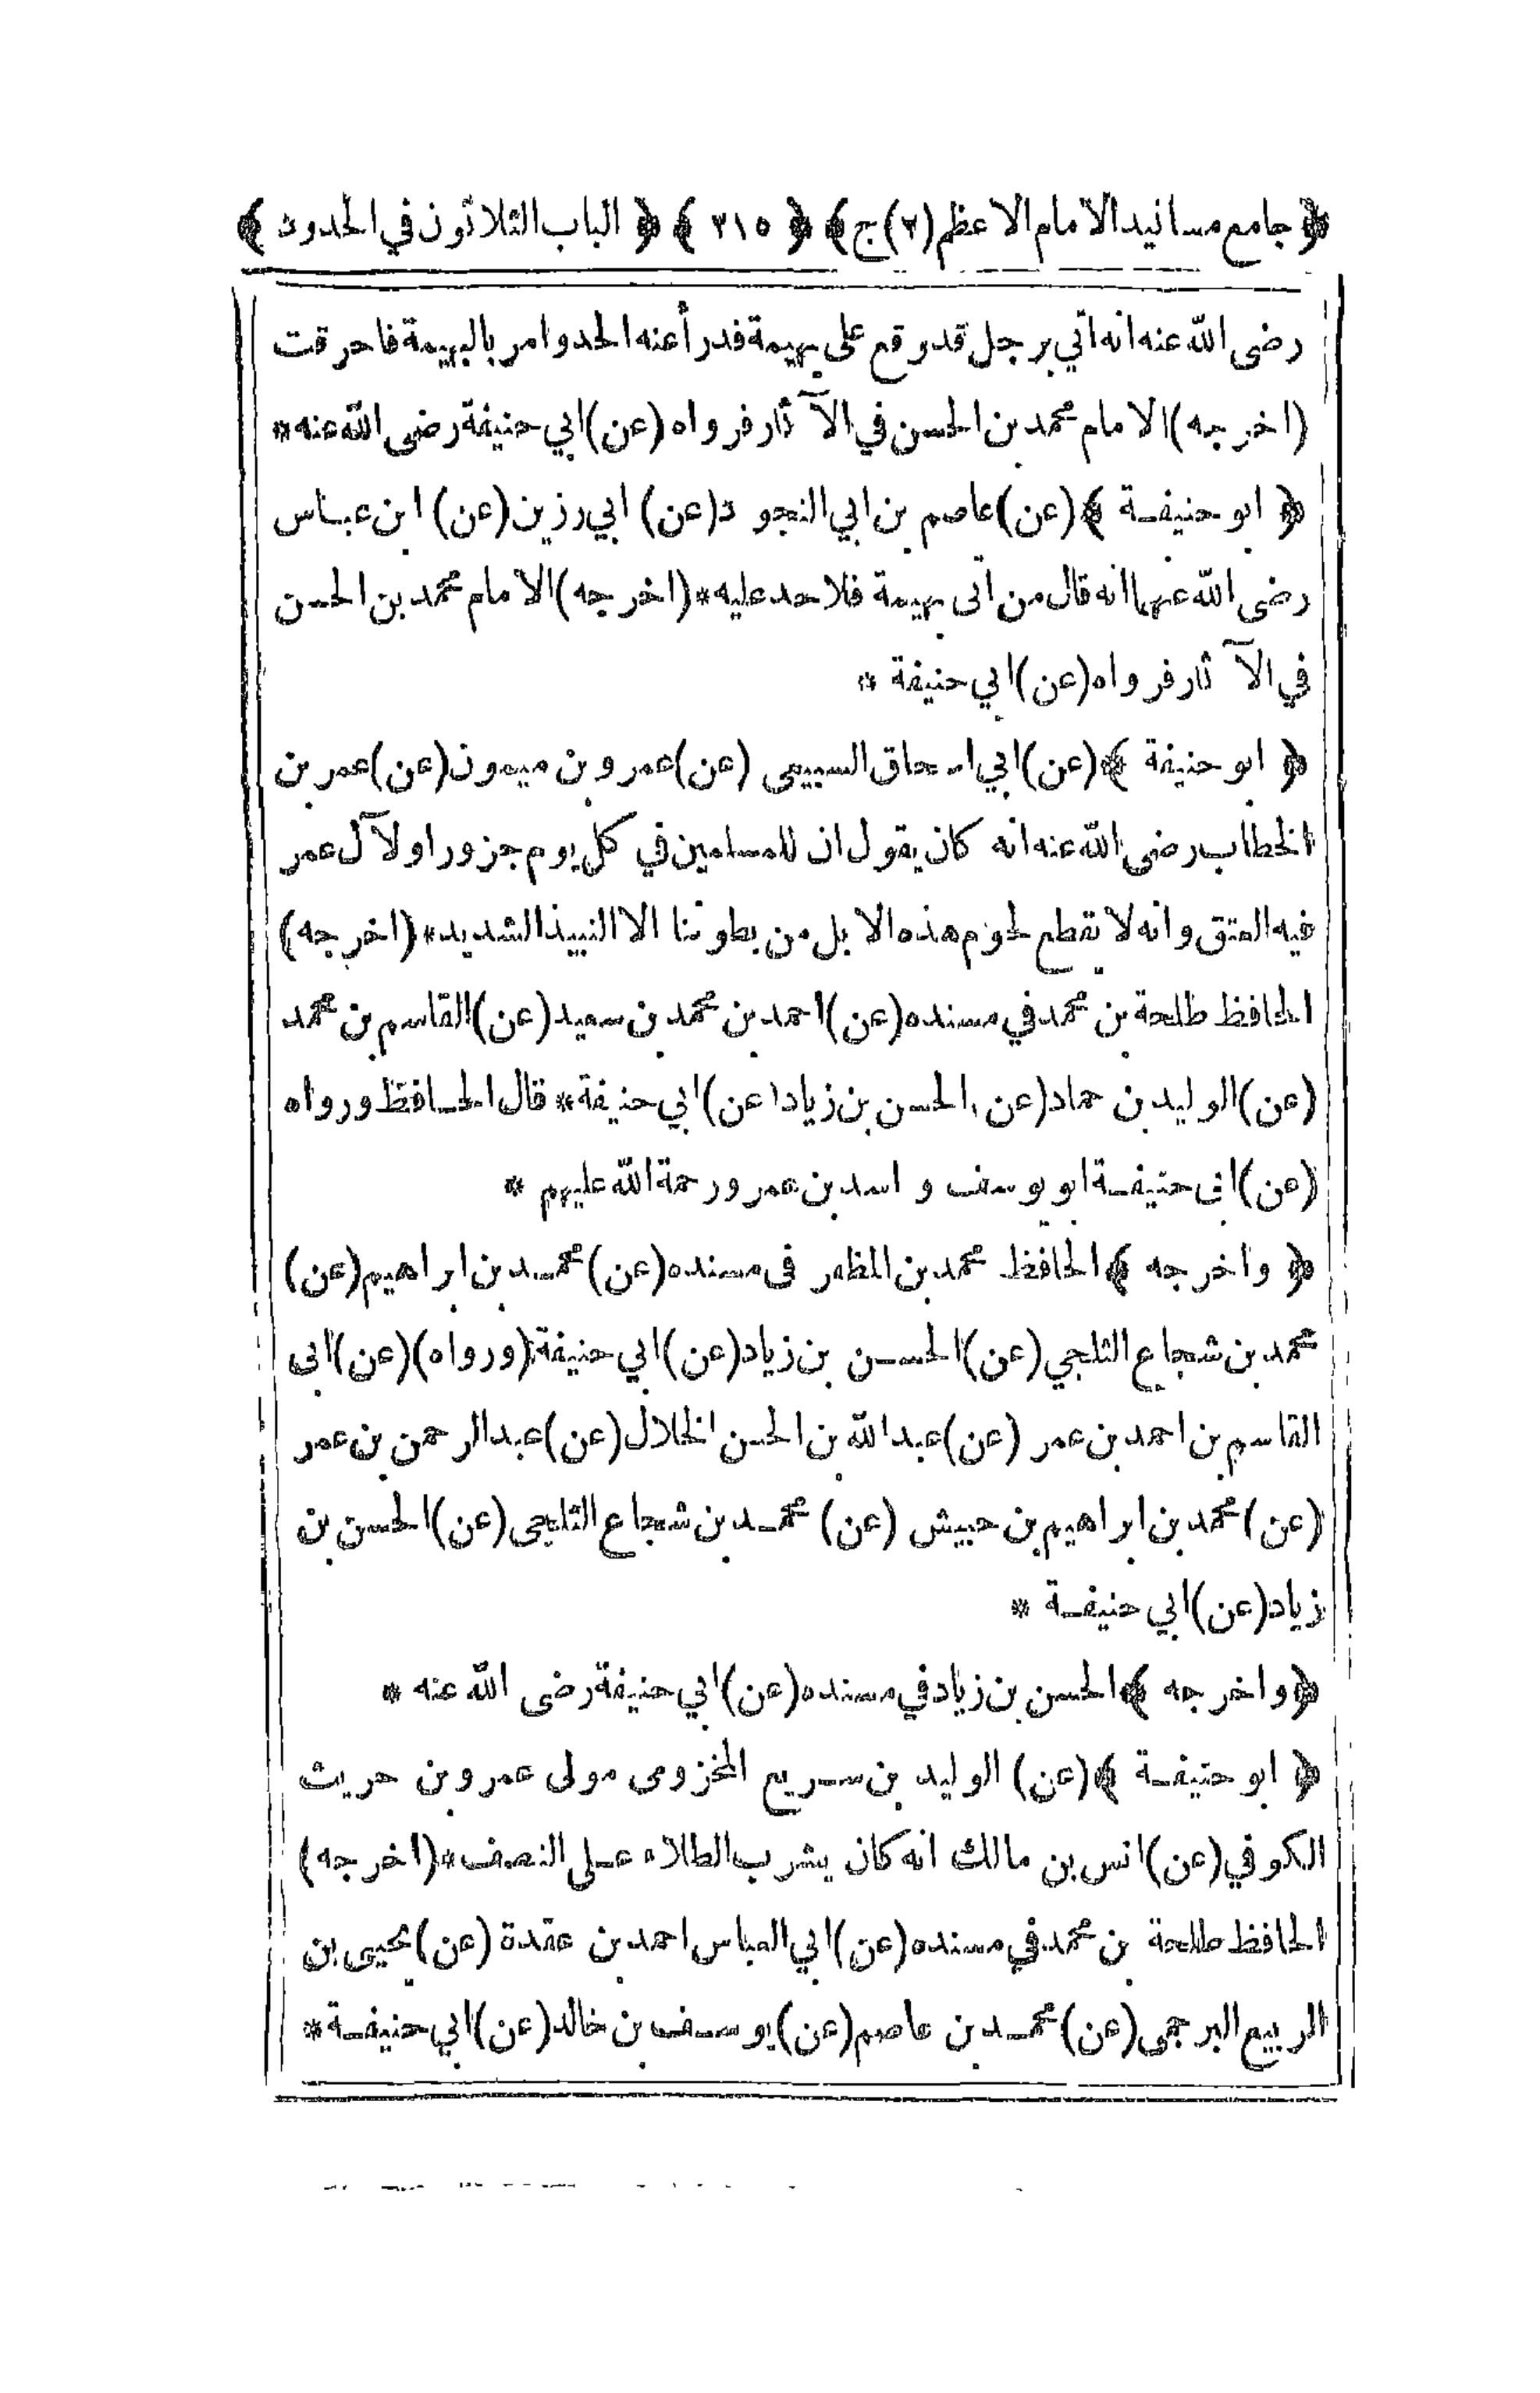 ﴿ جامع مسانيد الامام الاعظم (٢) ج ﴾ ﴿ ٣١٥ ﴾ ﴿ الباب الثلاثون في الحدود ﴾
رضى الله عنه انه اتي برجل قد وقع على بهيمة فدرأ عنه الحد وامر بالبهيمة فاحرقت
(اخرجه) الامام محمد بن الحسن في الآثار فرواه (عن) ابي حنيفة رضى الله عنه *
﴿ ابو حنيفة ﴾ (عن) عاصم بن ابي النجود (عن) ابي رزين (عن) ابن عباس
رضى الله عنهما انه قال من اتى بهيمة فلا حد عليه * (اخرجه) الامام محمد بن الحسن
في الآثار فرواه (عن) ابي حنيفة *
﴿ ابو حنيفة ﴾ (عن) ابي اسحاق السبيعى (عن) عمرو بن ميمون (عن) عمر بن
الخطاب رضى الله عنه انه كان يقول ان للمسلمين في كل يوم جزورا ولآل عمر
فيه العتق وانه لا يقطع لحوم هذه الابل من بطوننا الا النبيذ الشديد * (اخرجه)
الحافظ طلحة بن محمد في مسنده (عن) احمد بن محمد بن سعيد (عن) القاسم بن محمد
(عن) الوليد بن حماد (عن) الحسن بن زياد (عن) ابي حنيفة * قال الحافظ ورواه
(عن) ابى حنيفة ابو يوسف و اسد بن عمرو رحمة الله عليهم *
﴿ واخرجه ﴾ الحافظ محمد بن المظفر فى مسنده (عن) محمد بن ابراهيم (عن)
محمد بن شجاع الثلجي (عن) الحسن بن زياد (عن) ابي حنيفة (ورواه) (عن) ابى
القاسم بن احمد بن عمر (عن) عبد الله بن الحسن الخلال (عن) عبد الرحمن بن عمر
(عن) محمد بن ابراهيم بن حبيش (عن) محمد بن شجاع الثلجى (عن) الحسن بن
زياد (عن) ابي حنيفة *
﴿ واخرجه ﴾ الحسن بن زياد في مسنده (عن) ابي حنيفة رضى الله عنه *
﴿ ابو حنيفة ﴾ (عن) الوليد بن سريع المخزومى مولى عمرو بن حريث
الكوفي (عن) انس بن مالك انه كان يشرب الطلاء على النصف * (اخرجه)
الحافظ طلحة بن محمد في مسنده (عن) ابي العباس احمد بن عقدة (عن) يحيى بن
الربيع البرجمى (عن) محمد بن عاصم (عن) يوسف بن خالد (عن) ابي حنيفة *